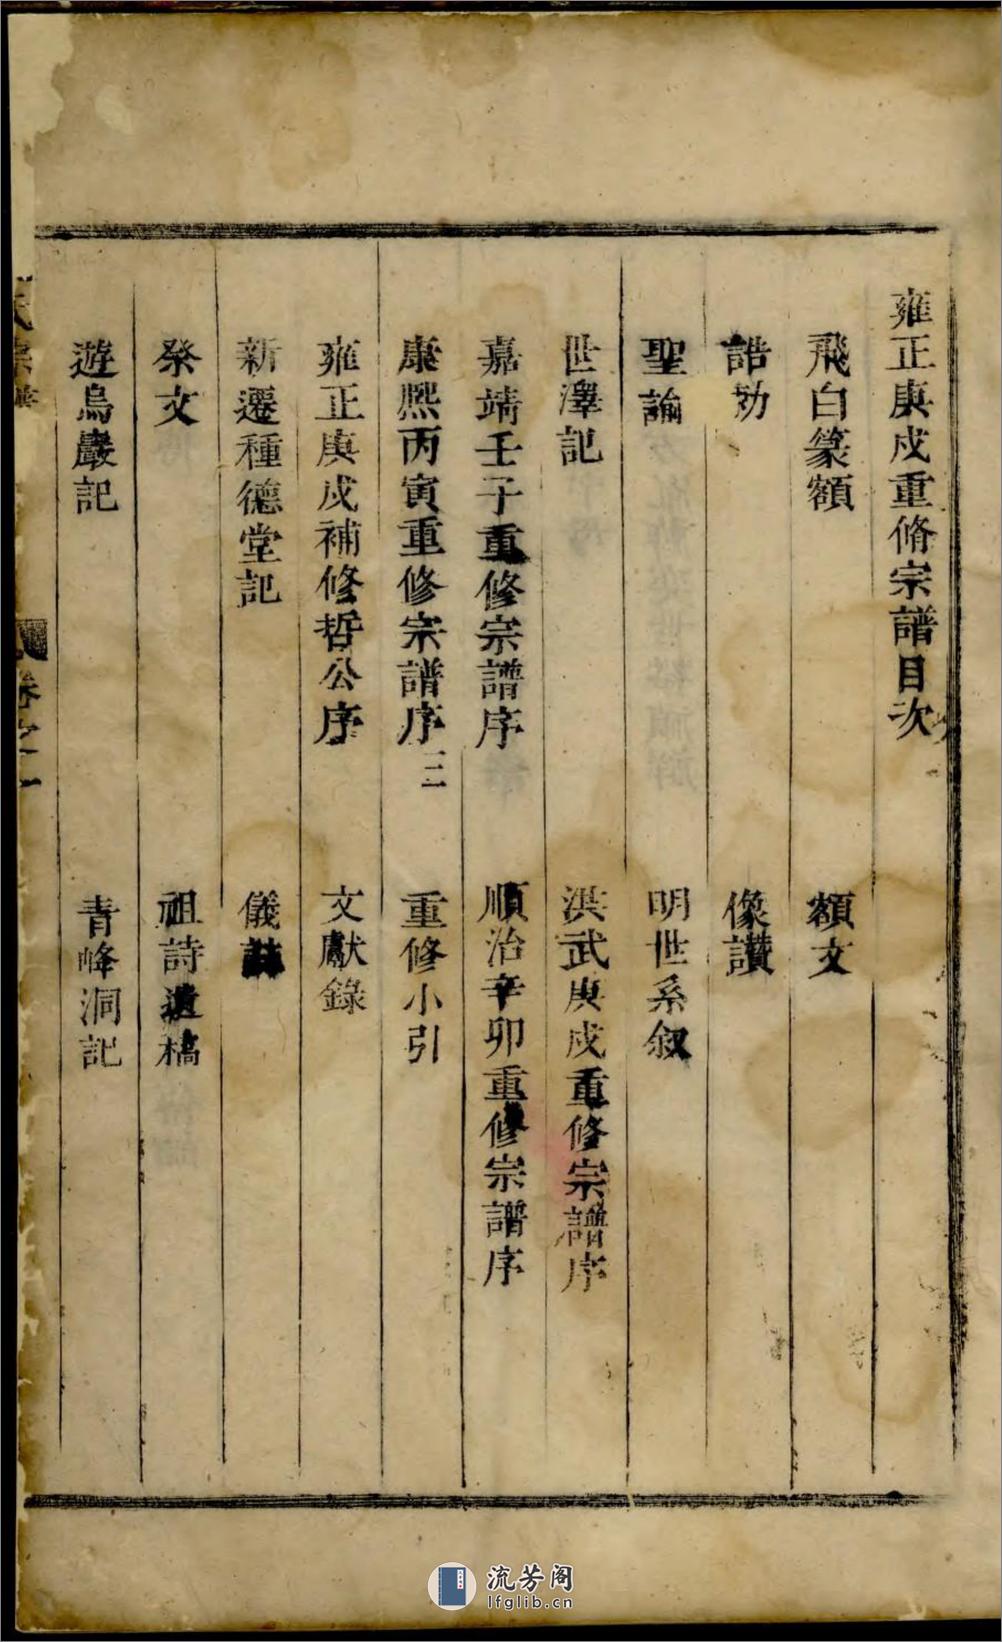 雍正庚戍重脩宗譜目次
飛白篆額　額文
誥勅　像讃
聖諭　明世系叙
世澤記　洪武庚戍重修宗譜序
嘉靖壬子重修宗譜序　順治辛卯重修宗譜序
康熈丙寅重修宗譜序三　重修小引
雍正庚戍補修哲公序　文獻錄
新遷種德堂記　儀
祭文　祖詩遺稿
遊烏巖記　青峰洞記
氏宗譜　卷之一
流芳阁
lfglib.cn